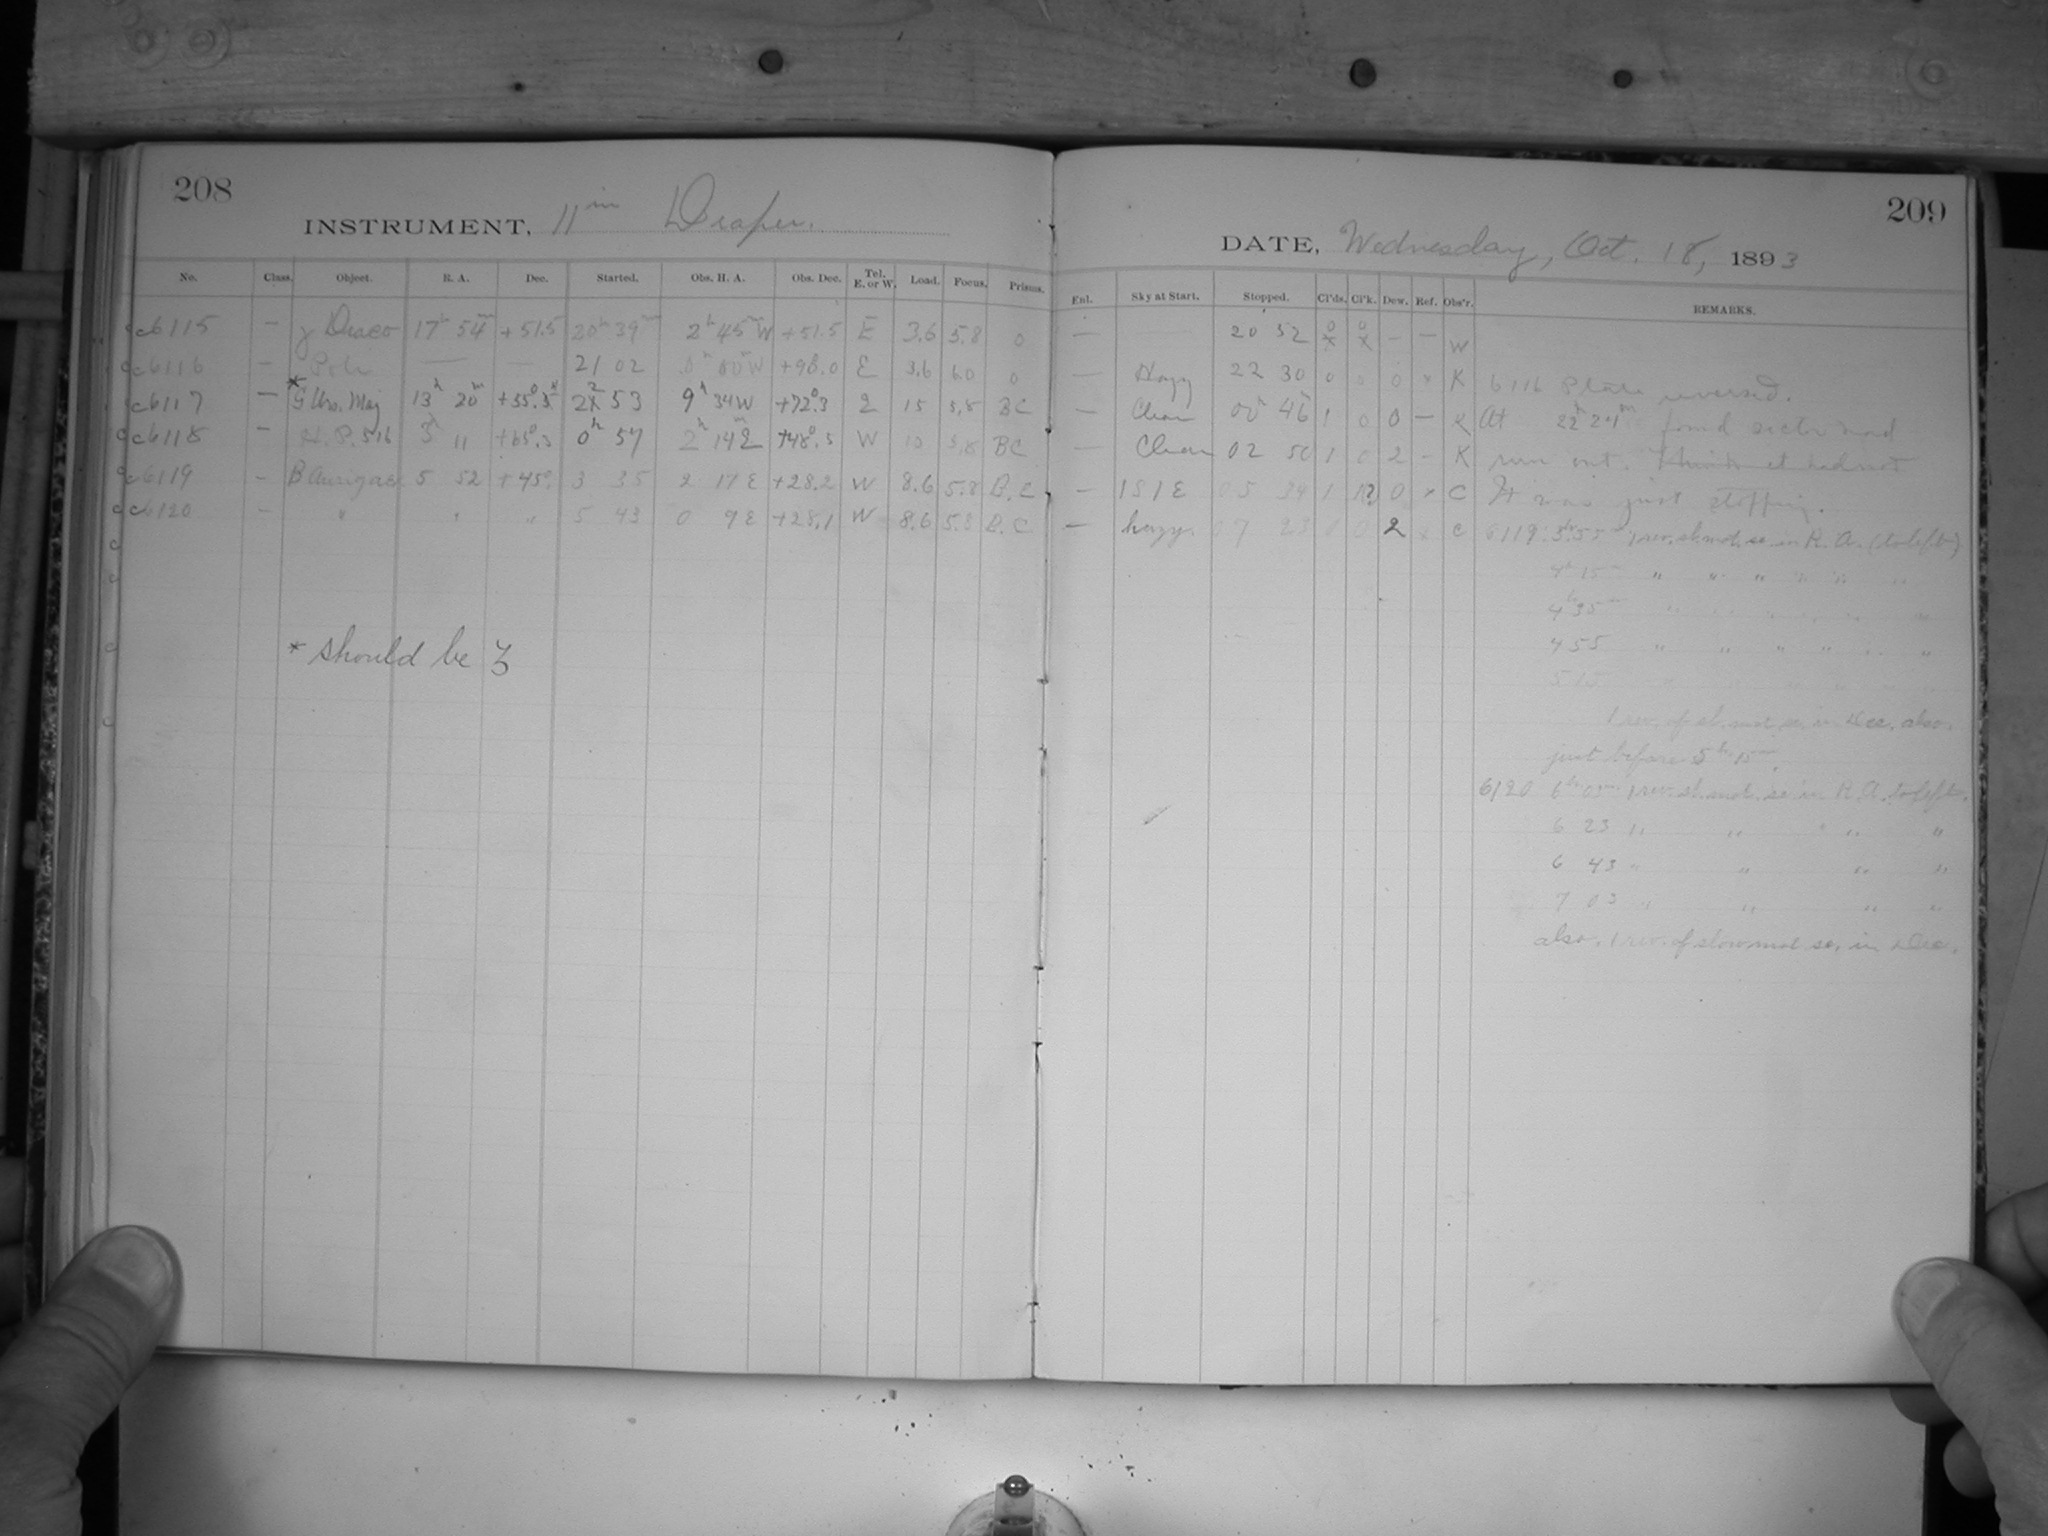 208
INSTRUMENT, 11 in Draper.
No. Class. Object. R. A. Dec. Started. Obs. H. A. Obs. Dec. Tel. E. or W. Load. Focus. Prisms.
c6115 — γ Draco 17h 54m +51.5 20h 39m 2h 45m W +51.5 E 3.6 5.8 0
c6116 — Pole — — 21 02 0h 00m W +90.0 E 3.6 6.0 0
c6117 — *G Urs. Maj 13h 20m +55°.5 22 53 9h 34 W +72°.3 E 15 5.8 BC
c6118 — H.P. 516 3h 11 +65°.3 0h 57 2h 14m E +48°.3 W 10 5.8 BC
c6119 — B Aurigae 5 52 +45° 3 35 2 17 E +28.2 W 8.6 5.8 B.C
c6120 — " " " 5 43 0 9 E +28.1 W 8.6 5.8 B.C
* should be ζ
209
DATE, Wednesday, Oct. 18, 1893
Enl. Sky at Start. Stopped. Cl'ds. Cl'k. Dew. Ref. Obs'r. REMARKS.
— — 20 52 — — W
— Hazy 22 30 0 0 0 x K 6116 Plate reversed.
— Clear 00h 46 1 0 0 — K At 22h 24m found sector had
— Clear 02 50 1 0 2 - K run out. Think it had not
— 1S1E 05 39 1 0 x C It was just stopping.
— hazy. 07 23 0 0 2 x C 6119 : 3h 55m 1 rev. sl. mot. sc. in R. A. (to left)
4h 15m " " " " " "
4h 35m " " " " " "
4 55 " " " " " "
5 15 " " " " "
1 rev. of sl. mot. sc. in Dec. also.
just before 5h 15m.
6120 6h 03m 1 rev. sl. mot. sc. in R. A. to left.
6 23 " " " "
6 43 " " " "
7 03 " " " "
also. 1 rev. of slow mot. sc. in Dec.